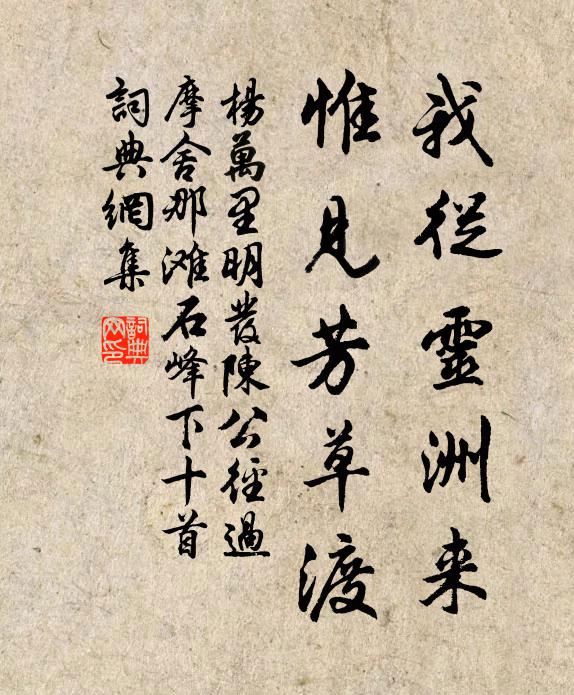 我從靈洲来
惟見芳草渡
楊萬里明發陳公徑過
摩舍那滩石峰下十首
詞典網集
詞典网印